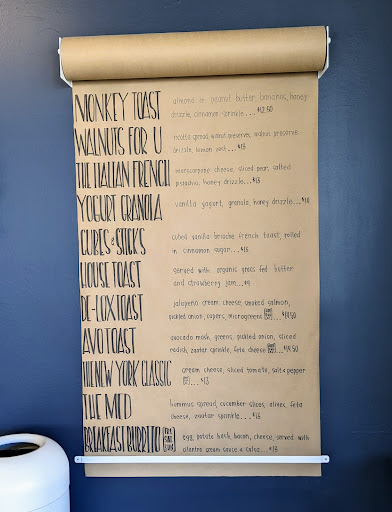 MONKEY TOAST almond or peanut butter bananas, honey
drizzle, cinnamon sprinkle....$12.50
WALNUTS FOR U ricotta spread, walnut preserve, walnut preserve
drizzle, lemon zest...$13
THE ITALIAN FRENCH mascarpone cheese, sliced pear, salted
pistachio, honey drizzle...$13
YOGURT GRANOLA vanilla yogurt, granola, honey drizzle...$10
CUBES & STICKS cubed vanilla brioche french toast, rolled
in cinnamon sugar...$15
HOUSE TOAST served with organic grass fed butter
and strawberry jam...$9
DE-LOX TOAST jalapeño cream cheese, smoked salmon,
pickled onion, capers, microgreens
AVO TOAST avocado mash, greens, pickled onion, sliced
radish, zaatar sprinkle, feta cheese
THE NEW YORK CLASSIC cream cheese, sliced tomato, salt & pepper
...$13
THE MED hummus spread, cucumber slices, olives, feta
cheese, zaatar sprinkle...$13
BREAKFAST BURRITO egg, potato hash, bacon, cheese, served with
cilantro crema sauce & salsa...$13